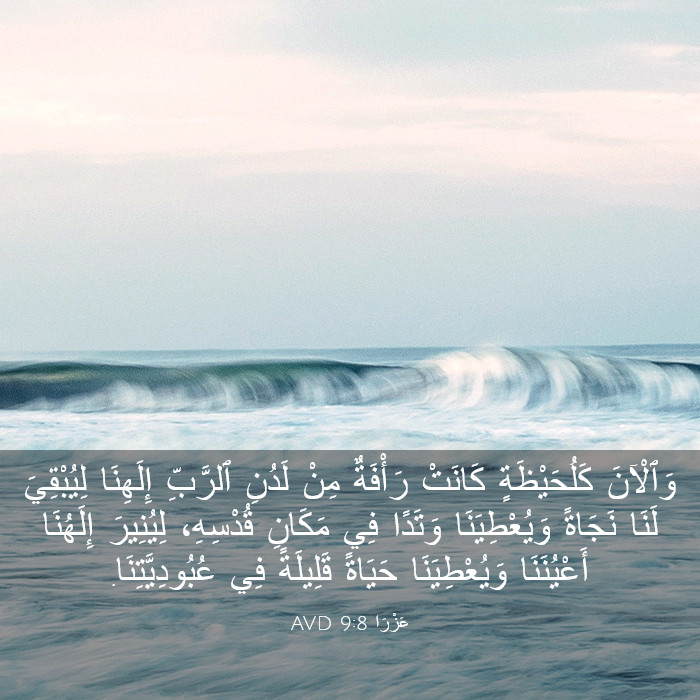 وَٱلْآنَ كَلُحَيْظَةٍ كَانَتْ رَأْفَةٌ مِنْ لَدُنِ ٱلرَّبِّ إِلَهِنَا لِيُبْقِيَ
لَنَا نَجَاةً وَيُعْطِيَنَا وَتَدًا فِي مَكَانِ قُدْسِهِ، لِيُنِيرَ إِلَهُنَا
أَعْيُنَنَا وَيُعْطِيَنَا حَيَاةً قَلِيلَةً فِي عُبُودِيَّتِنَا.
عَزْرَا 9:8 AVD